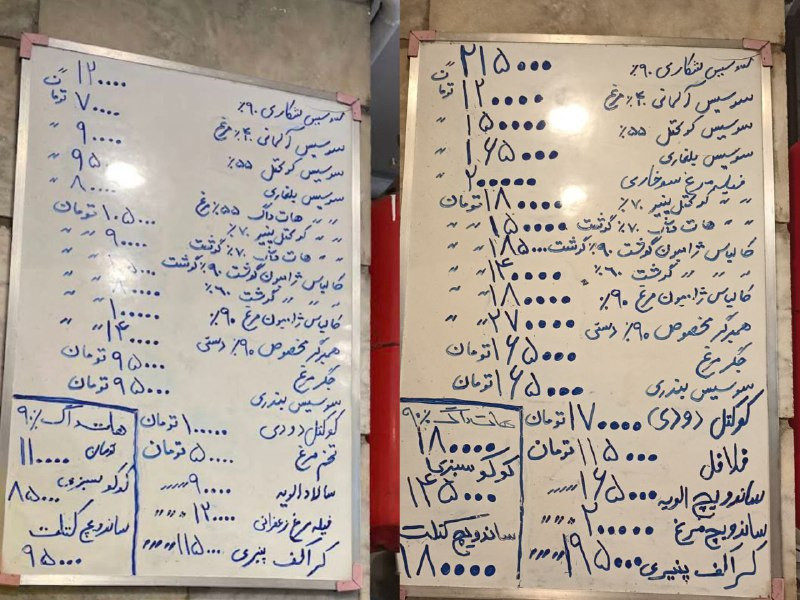 سوسیس شکاری ۹۰٪ ۱۲۰۰۰۰ ت
سوسیس آلمانی ۴۰٪ مرغ ۷۰۰۰۰ تومان
سوسیس کوکتل ۵۵٪ ۹۰۰۰۰ "
سوسیس بلغاری ۹۵۰۰۰ "
" " هات داگ ۵۵٪ مرغ ۸۰۰۰۰ "
" " کوکتل پنیر ۷۰٪ ۱۰۵۰۰۰ تومان
" " هات داگ ۷۰٪ گوشت ۹۰۰۰۰ " "
کالباس ژامبون گوشت ۹۰٪ گوشت " "
" " گوشت ۶۰٪ ۸۰۰۰۰ " "
کالباس ژامبون مرغ ۹۰٪ ۱۰۰۰۰۰ " "
همبرگر مخصوص ۹۰٪ دستی ۱۴۰۰۰۰ " "
جگر مرغ ۹۵۰۰۰ تومان
سوسیس بندری ۹۵۰۰۰ تومان
کوکتل دودی ۱۰۰۰۰۰ تومان
تخم مرغ ۵۰۰۰۰ تومان
سالاد الویه ۹۰۰۰۰ " "
فیله مرغ زعفرانی ۱۲۰۰۰۰ " "
کراکف پنیری ۱۱۵۰۰۰ " "
هات داگ ۹۰٪
۱۱۰۰۰۰ تومان
کوکو سبزی
۸۵۰۰۰
ساندویچ کتلت
۹۵۰۰۰
سوسیس شکاری ۹۰٪ ۲۱۵۰۰۰ ت
سوسیس آلمانی ۴۰٪ مرغ ۱۲۰۰۰۰ تومان
سوسیس کوکتل ۵۵٪ ۱۵۰۰۰۰ "
سوسیس بلغاری ۱۶۵۰۰۰ "
فیله مرغ سوخاری ۲۰۰۰۰۰ "
" " کوکتل پنیر ۷۰٪ ۱۸۰۰۰۰ تومان
" " هات داگ ۷۰٪ گوشت ۱۵۰۰۰۰ " "
کالباس ژامبون گوشت ۹۰٪ گوشت ۱۸۵۰۰۰ " "
" " گوشت ۶۰٪ ۱۴۰۰۰۰ " "
کالباس ژامبون مرغ ۹۰٪ ۱۸۰۰۰۰ " "
همبرگر مخصوص ۹۰٪ دستی ۲۷۰۰۰۰ " "
جگر مرغ ۱۶۵۰۰۰ تومان
سوسیس بندری ۱۶۵۰۰۰ تومان
کوکتل دودی ۱۷۰۰۰۰ تومان
فلافل ۱۱۵۰۰۰ تومان
ساندویچ الویه ۱۶۵۰۰۰ " "
ساندویچ مرغ ۲۰۰۰۰۰ " "
کراکف پنیری ۱۹۵۰۰۰ " "
هات داگ ۹۰٪
۱۸۰۰۰۰
کوکو سبزی
۱۴۵۰۰۰
ساندویچ کتلت
۱۸۰۰۰۰